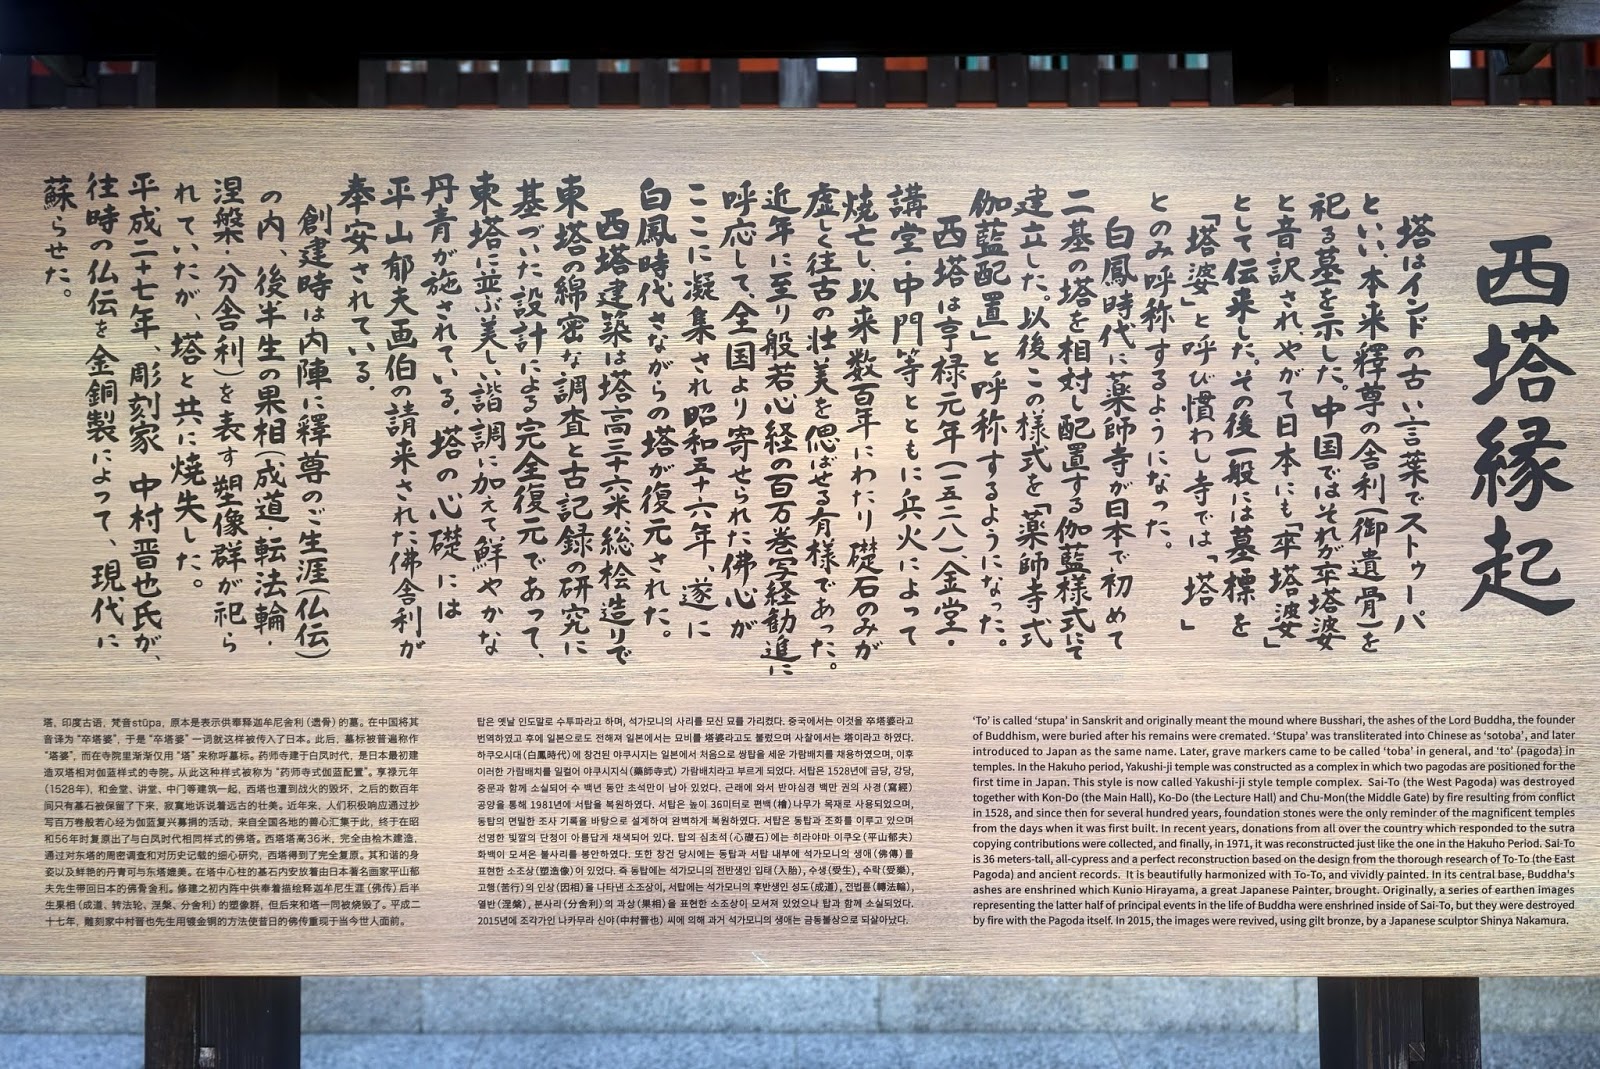 西塔縁起
塔はインドの古い言葉でストゥーパ
といい、本来釋尊の舎利(御遺骨)を
祀る墓を示した。中国ではそれが卒塔婆
と音訳され、やがて日本にも「卒塔婆」
として伝来した。その後一般には墓標を
「塔婆」と呼び慣わし寺では「塔」
とのみ呼称するようになった。
白鳳時代に薬師寺が日本で初めて
二基の塔を相対し配置する伽藍様式にて
建立した。以後この様式を「薬師寺式
伽藍配置」と呼称するようになった。
西塔は亨禄元年(一五二八)、金堂・
講堂・中門等とともに兵火によって
焼亡し、以来数百年にわたり礎石のみが
虚しく往古の壮美を偲ばせる有様であった。
近年に至り般若心経の百万巻写経勧進に
呼応して、全国より寄せられた佛心が
ここに凝集され昭和五十六年、遂に
白鳳時代さながらの塔が復元された。
西塔建築は塔高三十六米、総桧造りで
東塔の綿密な調査と古記録の研究に
基づいた設計による完全復元であって、
東塔に並ぶ美しい諧調に加えて鮮やかな
丹青が施されている。塔の心礎には
平山郁夫画伯の請来された佛舎利が
奉安されている。
創建時は内陣に釋尊のご生涯(仏伝)
の内、後半生の果相(成道・転法輪・
涅槃・分舎利)を表す塑像群が祀ら
れていたが、塔と共に焼失した。
平成二十七年、彫刻家 中村晋也氏が、
往時の仏伝を金銅製によって、現代に
蘇らせた。
塔，印度古语，梵音stūpa，原本是表示供奉释迦牟尼舍利（遗骨）的墓。在中国将其
音译为“卒塔婆”，于是“卒塔婆”一词就这样被传入了日本。此后，墓标被普遍称作
“塔婆”，而在寺院里渐渐仅用“塔”来称呼墓标。药师寺建于白凤时代，是日本最初建
造双塔相对伽蓝样式的寺院。从此这种样式被称为“药师寺式伽蓝配置”。享禄元年
(1528年)，和金堂、讲堂、中门等建筑一起，西塔也遭到战火的毁坏，之后的数百年
间只有基石被保留了下来，寂寞地诉说着远古的壮美。近年来，人们积极响应通过抄
写百万卷般若心经为伽蓝复兴募捐的活动，来自全国各地的善心汇集于此，终于在昭
和56年时复原出了与白凤时代相同样式的佛塔。西塔塔高36米，完全由桧木建造，
通过对东塔的周密调查和对历史记载的细心研究，西塔得到了完全复原。其和谐的身
姿以及鲜艳的丹青可与东塔媲美。在塔中心柱的基石内安放着由日本著名画家平山郁
夫先生带回日本的佛骨舍利。修建之初内阵中供奉着描绘释迦牟尼生涯（佛传）后半
生果相(成道、转法轮、涅槃、分舍利)的塑像群，但后来和塔一同被烧毁了。平成二
十七年，雕刻家中村晋也先生用镀金铜的方法使昔日的佛传重现于当今世人面前。
탑은 옛날 인도말로 수투파라고 하며, 석가모니의 사리를 모신 묘를 가리켰다. 중국에서는 이것을 卒塔婆라고
번역하였고 후에 일본으로도 전해져 일본에서는 묘비를 塔婆라고도 불렀으며 사찰에서는 塔이라고 하였다.
하쿠오시대(白鳳時代)에 창건된 야쿠시지는 일본에서 처음으로 쌍탑을 세운 가람배치를 채용하였으며, 이후
이러한 가람배치를 일컬어 야쿠시지식(藥師寺式) 가람배치라고 부르게 되었다. 서탑은 1528년에 금당, 강당,
중문과 함께 소실되어 수 백년 동안 초석만이 남아 있었다. 근래에 와서 반야심경 백만 권의 사경(寫經)
공양을 통해 1981년에 서탑을 복원하였다. 서탑은 높이 36미터로 편백(檜)나무가 목재로 사용되었으며,
동탑의 면밀한 조사 기록을 바탕으로 설계하여 완벽하게 복원하였다. 서탑은 동탑과 조화를 이루고 있으며
선명한 빛깔의 단청이 아름답게 채색되어 있다. 탑의 심초석(心礎石)에는 히라야마 이쿠오(平山郁夫)
화백이 모셔온 불사리를 봉안하였다. 또한 창건 당시에는 동탑과 서탑 내부에 석가모니의 생애(佛傳)를
표현한 소조상(塑造像)이 있었다. 즉 동탑에는 석가모니의 전반생인 입태(入胎), 수생(受生), 수락(受樂),
고행(苦行)의 인상(因相)을 나타낸 소조상이, 서탑에는 석가모니의 후반생인 성도(成道), 전법륜(轉法輪),
열반(涅槃), 분사리(分舍利)의 과상(果相)을 표현한 소조상이 모셔져 있었으나 탑과 함께 소실되었다.
2015년에 조각가인 나카무라 신야(中村晋也) 씨에 의해 과거 석가모니의 생애는 금동불상으로 되살아났다.
‘To’ is called ‘stupa’ in Sanskrit and originally meant the mound where Busshari, the ashes of the Lord Buddha, the founder
of Buddhism, were buried after his remains were cremated. ‘Stupa’ was transliterated into Chinese as ‘sotoba’, and later
introduced to Japan as the same name. Later, grave markers came to be called ‘toba’ in general, and ‘to’ (pagoda) in
temples. In the Hakuho period, Yakushi-ji temple was constructed as a complex in which two pagodas are positioned for the
first time in Japan. This style is now called Yakushi-ji style temple complex. Sai-To (the West Pagoda) was destroyed
together with Kon-Do (the Main Hall), Ko-Do (the Lecture Hall) and Chu-Mon(the Middle Gate) by fire resulting from conflict
in 1528, and since then for several hundred years, foundation stones were the only reminder of the magnificent temples
from the days when it was first built. In recent years, donations from all over the country which responded to the sutra
copying contributions were collected, and finally, in 1971, it was reconstructed just like the one in the Hakuho Period. Sai-To
is 36 meters-tall, all-cypress and a perfect reconstruction based on the design from the thorough research of To-To (the East
Pagoda) and ancient records. It is beautifully harmonized with To-To, and vividly painted. In its central base, Buddha's
ashes are enshrined which Kunio Hirayama, a great Japanese Painter, brought. Originally, a series of earthen images
representing the latter half of principal events in the life of Buddha were enshrined inside of Sai-To, but they were destroyed
by fire with the Pagoda itself. In 2015, the images were revived, using gilt bronze, by a Japanese sculptor Shinya Nakamura.